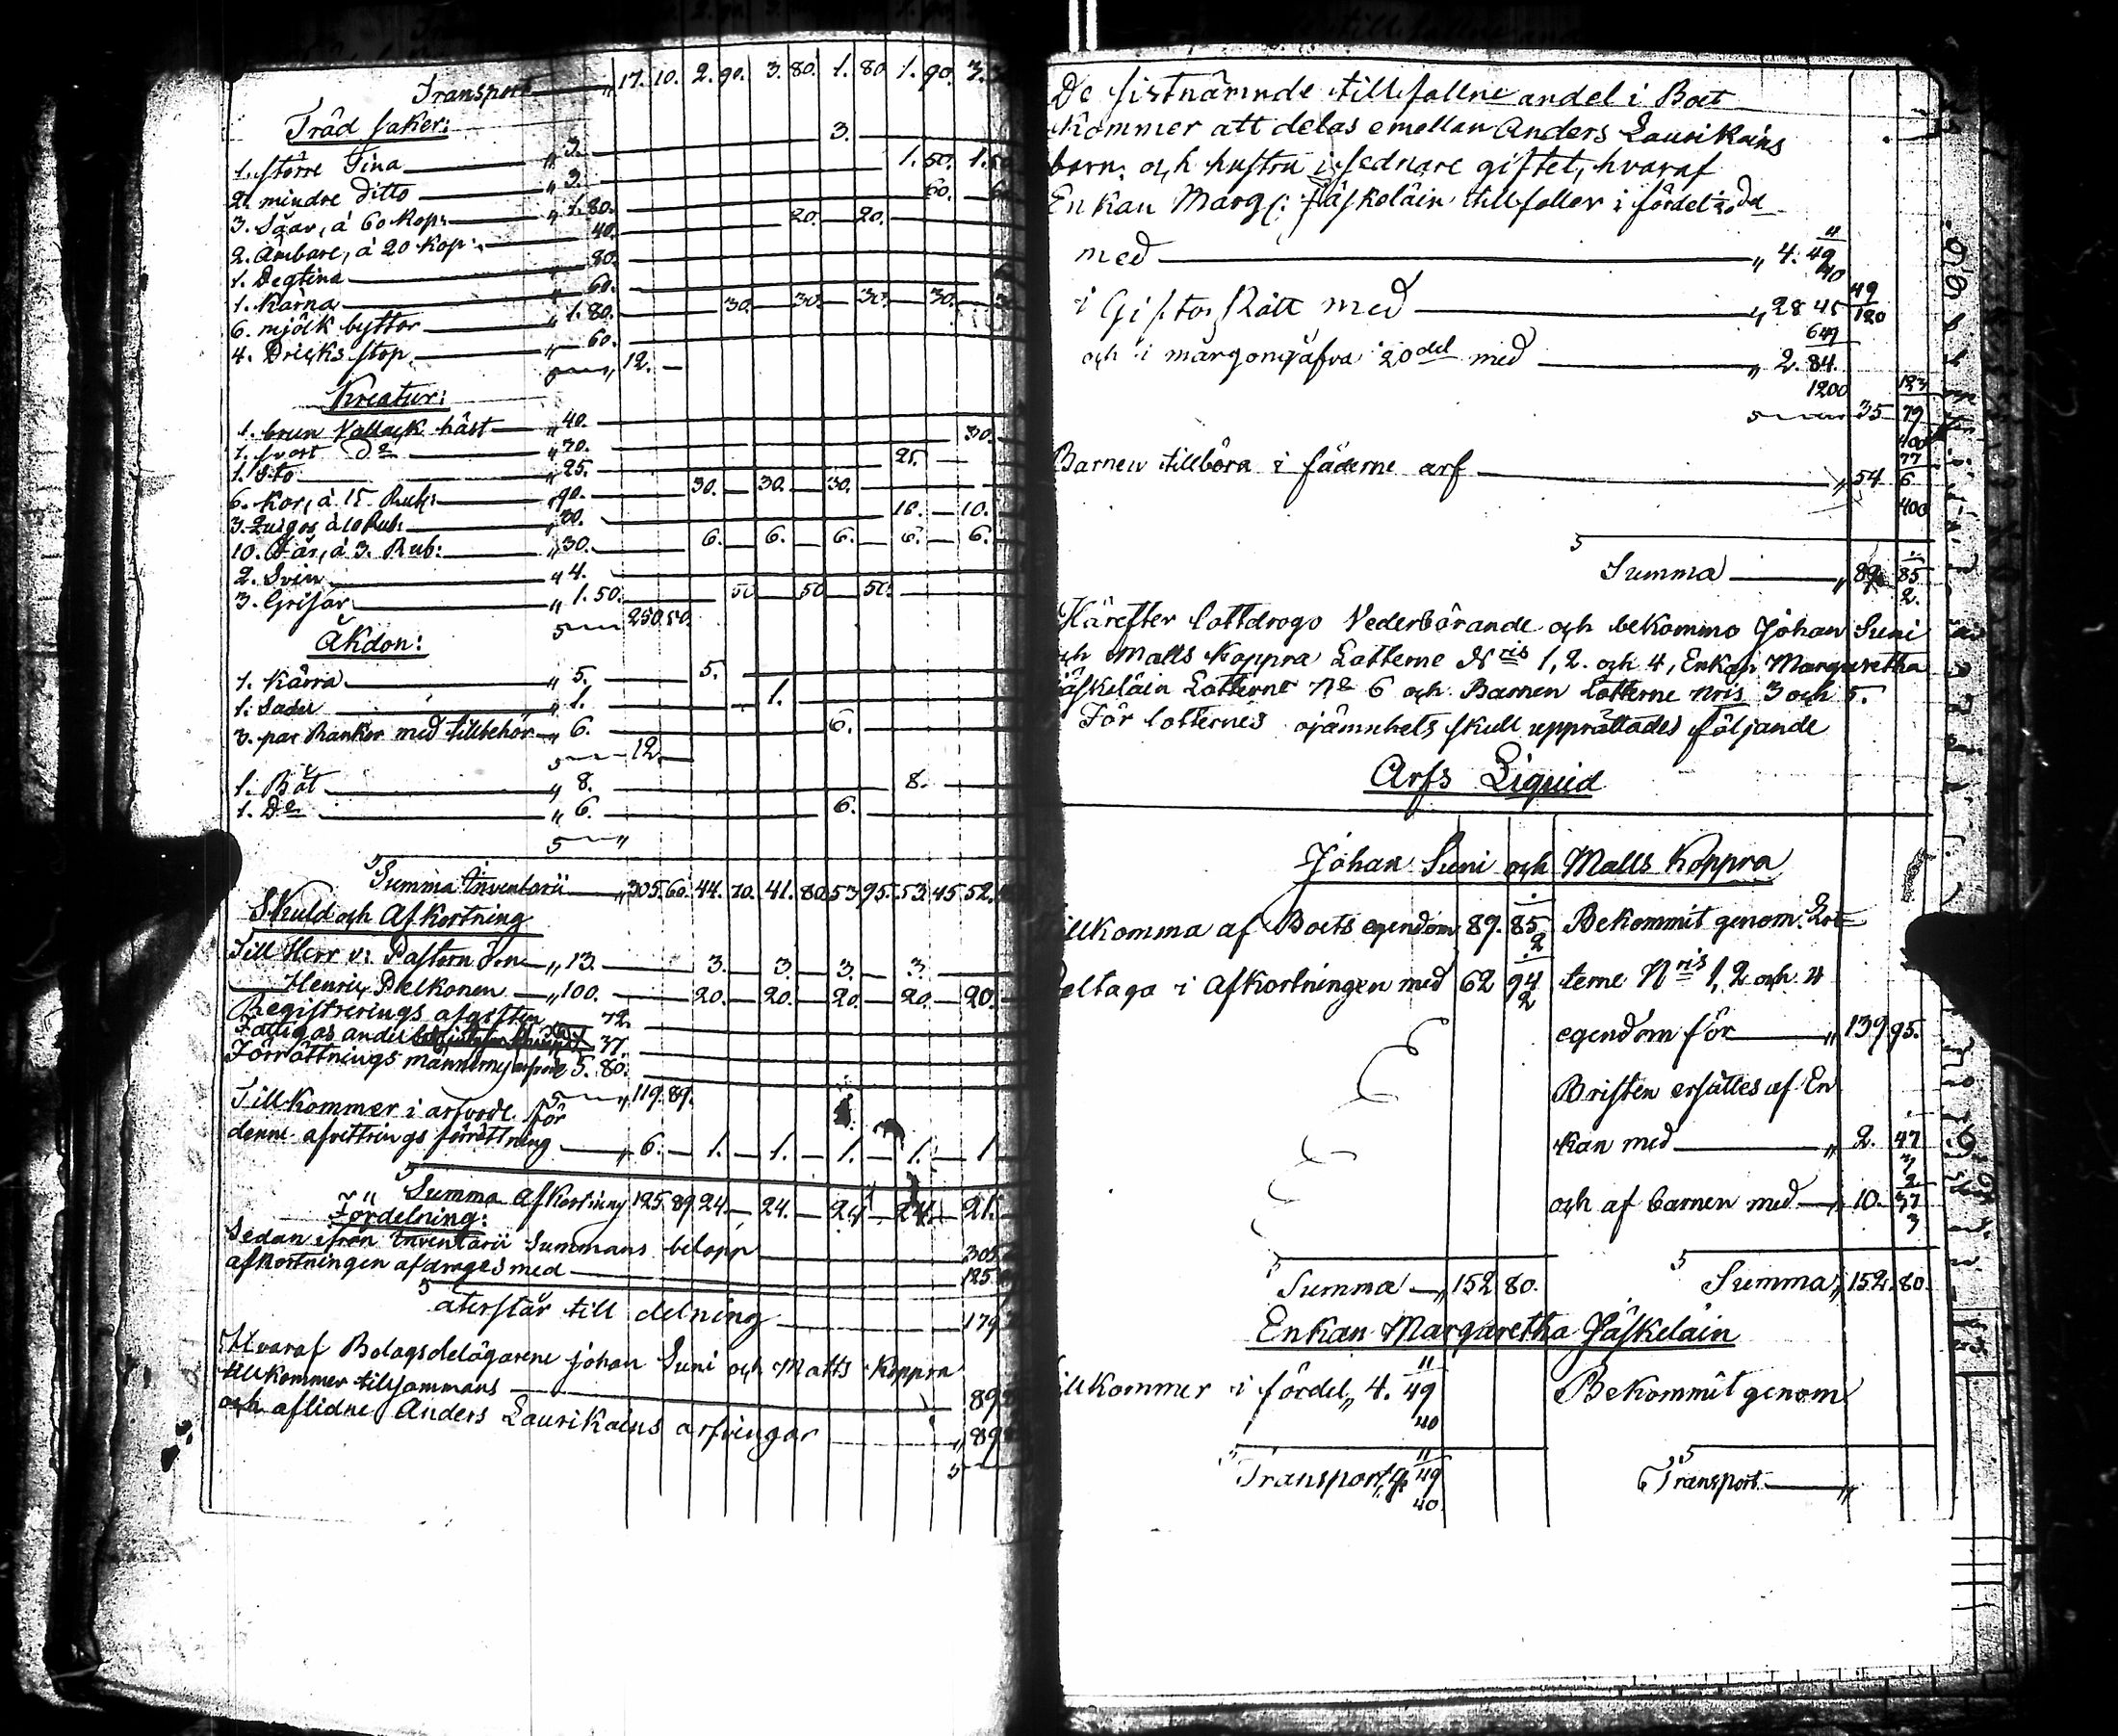 Transport „ 17. 10. 2. 90. 3. 80. 1. 80 1. 90. 3.
Träd saker:
1. större Tina „ 3. 3.
2. mindre ditto „ 3. 1. 50. 1.
3. Såar, á 60 Kop: „ 1. 80. 60.
2. Ämbare, á 20 Kop: „ 40. 20. 20.
1. Degtina „ 80.
1. Kärna „ 60.
6. mjölk byttor „ 1. 80. 30. 30. 30. 30.
4. Dricks stop „ 60.
12.
Kreatur:
1. brun Vallack häst „ 40.
1. svart do „ 30. 30.
1. Sto „ 25. 25.
6. Kor, á 15 Rub: „ 90. 30. 30. 30.
3. Quigor á 10 Rub: „ 30. 10. 10.
10. Får, á 3. Rub: „ 30. 6. 6. 6. 6. 6.
2. Svin „ 4.
3. Grisar „ 1. 50. 50 50 50.
250. 50.
Åkdon:
1. Kärra „ 5. 5.
1. Sadel „ 1. 1.
3. par Rankor med tillbehör „ 6. 6.
12.
1. Båt „ 8. 8.
1. Do „ 6. 6.
Summa Inventarii „ 305. 60. 44. 70. 41. 80. 53. 95. 53. 45 52.
Skuld och Afkortning
Till Herr v: Pastorn „ 13. 3. 3. 3. 3.
Henric Pelkonen „ 100. 20. 20. 20. 20. 20.
Registrerings afgiften 72.
Fattigas andel 37.
Förrättnings männerne 5. 80.
„ 119. 89.
Tillkommer i arfvode för
denne afvittrings förrättning „ 6. 1. 1. 1. 1. 1
Summa Afkortning 125 89 24. 24. 24 24. 21.
Fördelning:
Sedan ifrån Inventarii Summans belopp 305
afkortningen afdrages med 125
återstår till delning 179
Hvaraf Bolagsdelägarene Johan Suni och Matts Koppra
tillkommer tillsammans 89
och aflidne Anders Laurikains arfvingar „ 89
De sistnämnde tillfallne andel i Boet
kommer att delas emellan Anders Laurikains
barn, och hustru i sednare giftet, hvaraf
Enkan Marg: Jäskeläin tillfaller i fördel 20de
med „ 4. 11 49 40
i Giftorätt med „ 28 45 49 120
och i morgongåfva 20del med „ 2. 84. 649 1200
35 79 123 400
Barnen tillböra i fäderne arf „ 54 6 77 400
Summa „ 89. 85 2.
Härefter lottdrogo Vederbörande och bekommo Johan Suni
och Matts Koppra Lotterne Nris 1, 2. och 4, Enkan Margaretha
Jäskeläin Lotterne No 6 och Barnen Lotterne Nris 3 och 5.
För lotternes ojämnhets skull upprättades följande
Arfs Liquid
Johan Suni och Matts Koppra
Tillkomma af Boets egendom 89. 85 2 Bekommit genom Lot
Deltaga i afkortningen med 62 94 2 terne Nris 1, 2 och 4
egendom för „ 139 95.
Bristen ersättes af En
kan med „ 2. 47
och af barnen med „ 10. 37 3
Summa „ 152 80. Summa „ 152. 80.
Enkan Margaretha Jäskeläin
Tillkommer i fördel „ 4. 11 49 40 Bekommit genom
Transport „ 4 11 49 40 Transport „